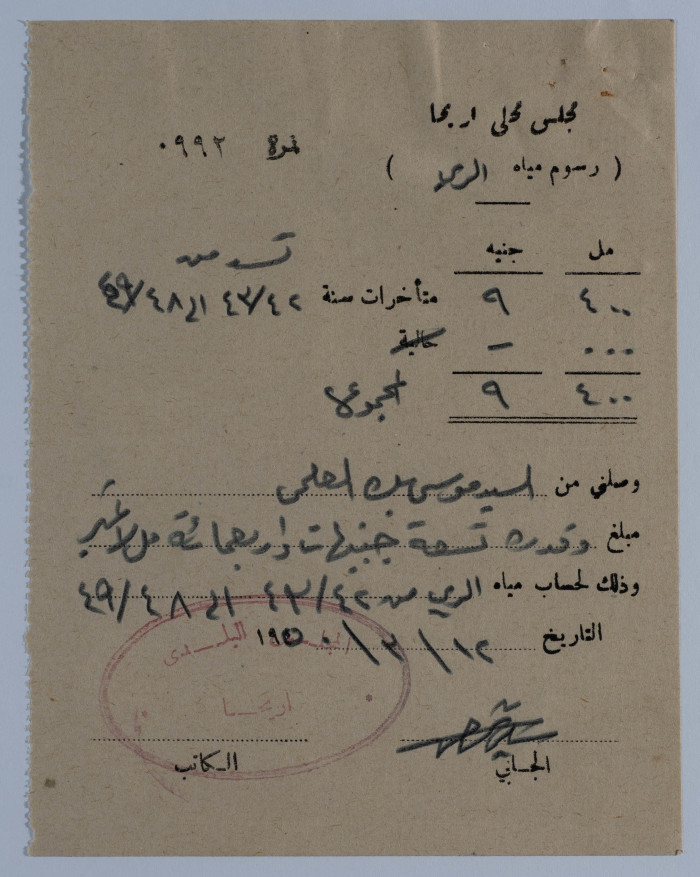 مجلس محلي اريحا
نمرة ٠٩٩٢
( رسوم مياه الري )
مل جنيه
٤٠٠ ٩ متأخرات سنة ٤٣/٤٢ الى ٤٩/٤٨
٠٠٠ - حالية
٤٠٠ ٩ المجموع
وصلني من السيد موسى بك العلمي
مبلغ وقدره تسعة جنيهات واربعمائة مل لا غير
وذلك لحساب مياه الري من ٤٣/٤٢ الى ٤٩/٤٨
التاريخ ١٢/٣/١٩٥٠
البلدي
اريحا
الجابي الكاتب